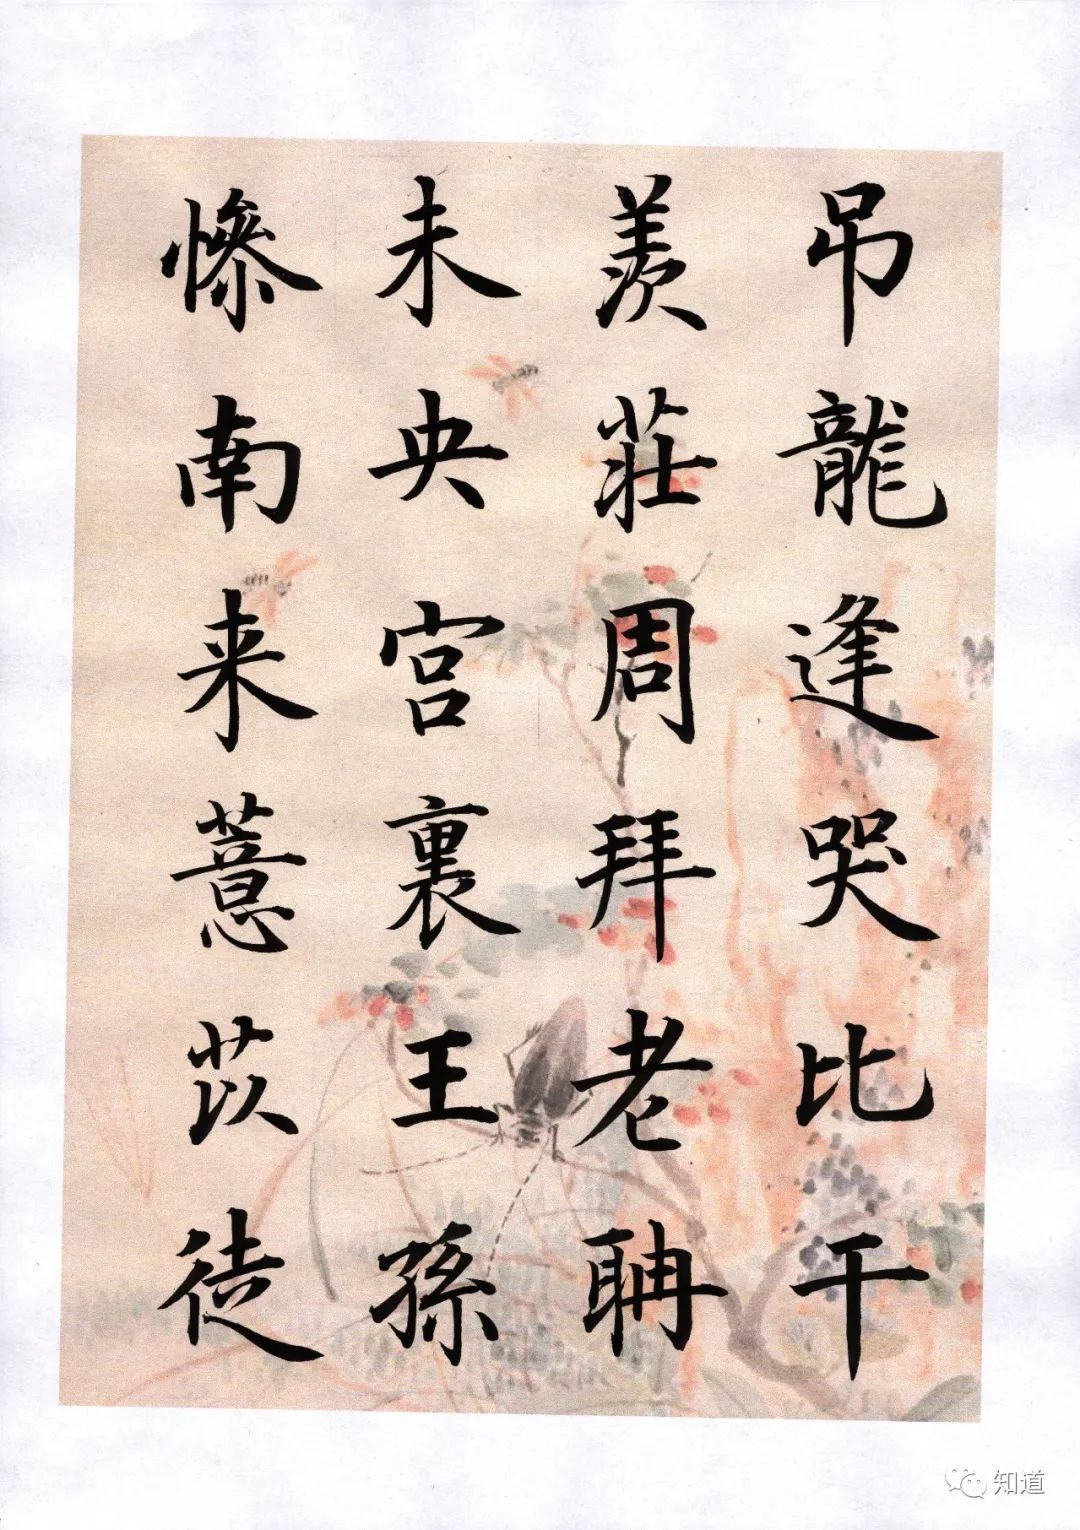 吊龍逢哭比干
羨莊周拜老聃
未央宮裏王孫
慘南来薏苡徒
知道